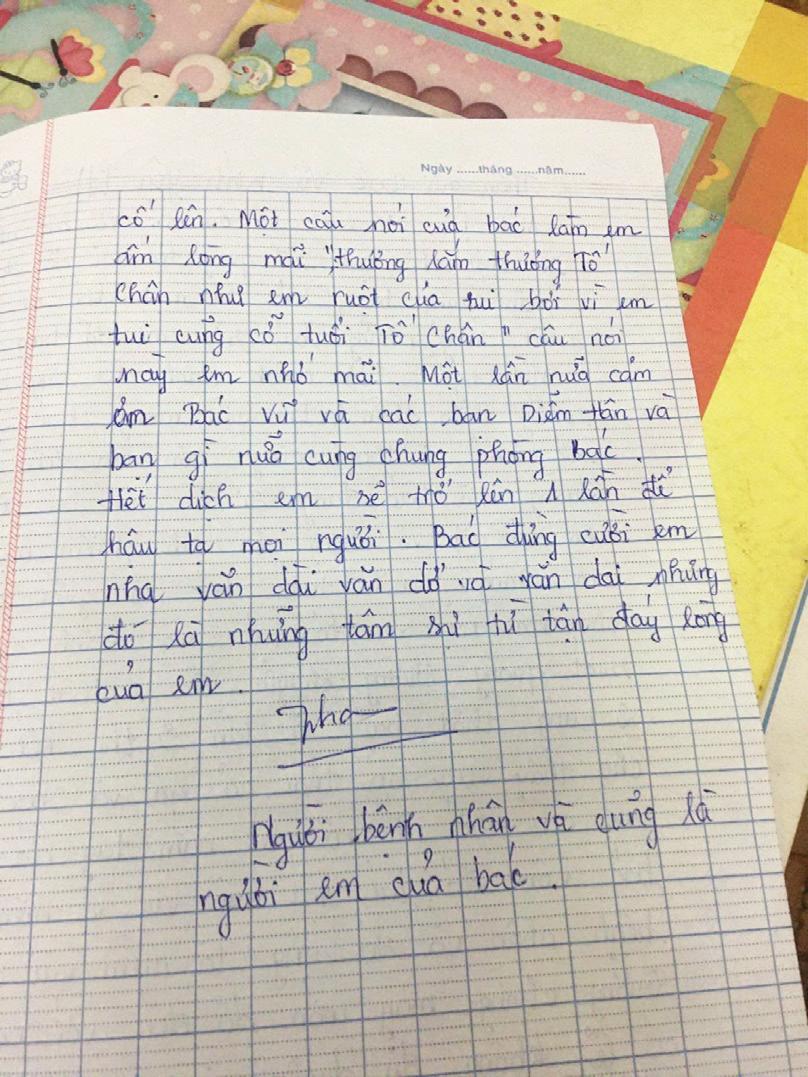 Ngày ......tháng ......năm......
cố lên. Một câu nói của bác làm em
ấm lòng mãi "thương lắm thương Tố
Chân như em ruột của tui bởi vì em
tui cũng cỡ tuổi Tố Chân" câu nói
này em nhớ mãi. Một lần nữa cảm
ơn Bác Vũ và các bạn Diễm Hân và
bạn gì nữa cùng chung phòng bác.
Hết dịch em sẽ trở lên 1 lần để
hậu tạ mọi người. Bác đừng cười em
nha văn dài văn dở và văn dai nhưng
đó là những tâm sự từ tận đáy lòng
của em.
Người bệnh nhân và cũng là
người em của bác.